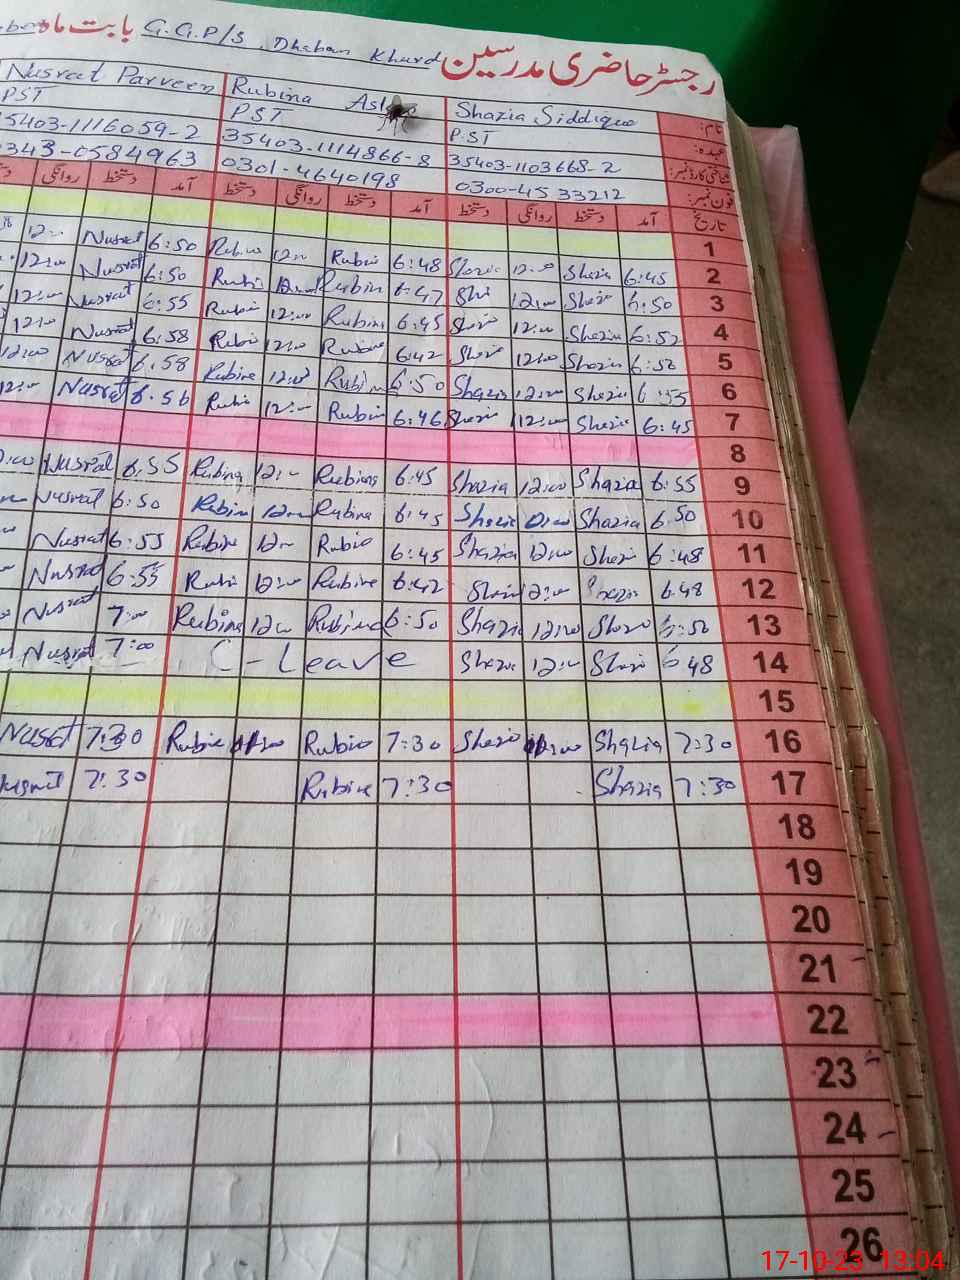 رجسٹر حاضری مدرسین G.G.P/S Dhaban Khurd بابت ماہ
نام: Shazia Siddique Rubina Nusrat Parveen
عہدہ: PST PST PST
شناختی کارڈ نمبر: 35403-1103668-2 35403-1114866-8 35403-1116059-2
فون نمبر: 0300-4533212 0301-4640198 0343-0584963
تاریخ آمد دستخط روانگی دستخط آمد دستخط روانگی دستخط آمد دستخط روانگی
1
2 6:45 Shazia 12:00 Shazia 6:48 Rubin 12:00 Rubina 6:50 Nusrat 12:00
3 6:50 Shazia 12:00 Sha 6:47 Rubin 12:00 Rubi 6:50 Nusrat 12:00
4 6:52 Shazia 12:00 Shazia 6:45 Rubina 12:00 Rubin 6:55 Nusrat 12:00
5 6:50 Shazia 12:00 Shazia 6:42 Rubina 12:00 Rubi 6:58 Nusrat 12:00
6 6:55 Shazia 12:00 Shazia 6:50 Rubina 12:00 Rubina 6:58 Nusrat 12:00
7 6:45 Shazia 12:00 Shazia 6:46 Rubin 12:00 Rubi 6:56 Nusrat 12:00
8
9 6:55 Shazia 12:00 Shazia 6:45 Rubina 12:00 Rubina 6:55 Nusrat
10 6:50 Shazia Shazia 6:45 Rubina 12:00 Rubina 6:50 Nusrat
11 6:48 Shazia 12:00 Shazia 6:45 Rubia 12:00 Rubina 6:55 Nusrat
12 6:48 Shazia 12:00 Shazia 6:42 Rubina 12:00 Rubi 6:55 Nusrat
13 6:50 Shazia 12:00 Shazia 6:50 Rubina 12:00 Rubina 7:00 Nusrat
14 6:48 Shazia 12:00 Shazia C-Leave 7:00 Nusrat
15
16 7:30 Shazia Shazia 7:30 Rubia Rubia 7:30 Nusrat
17 7:30 Shazia 7:30 Rubina 7:30 Nusrat
18
19
20
21
22
23
24
25
26
17-10-23 13:04